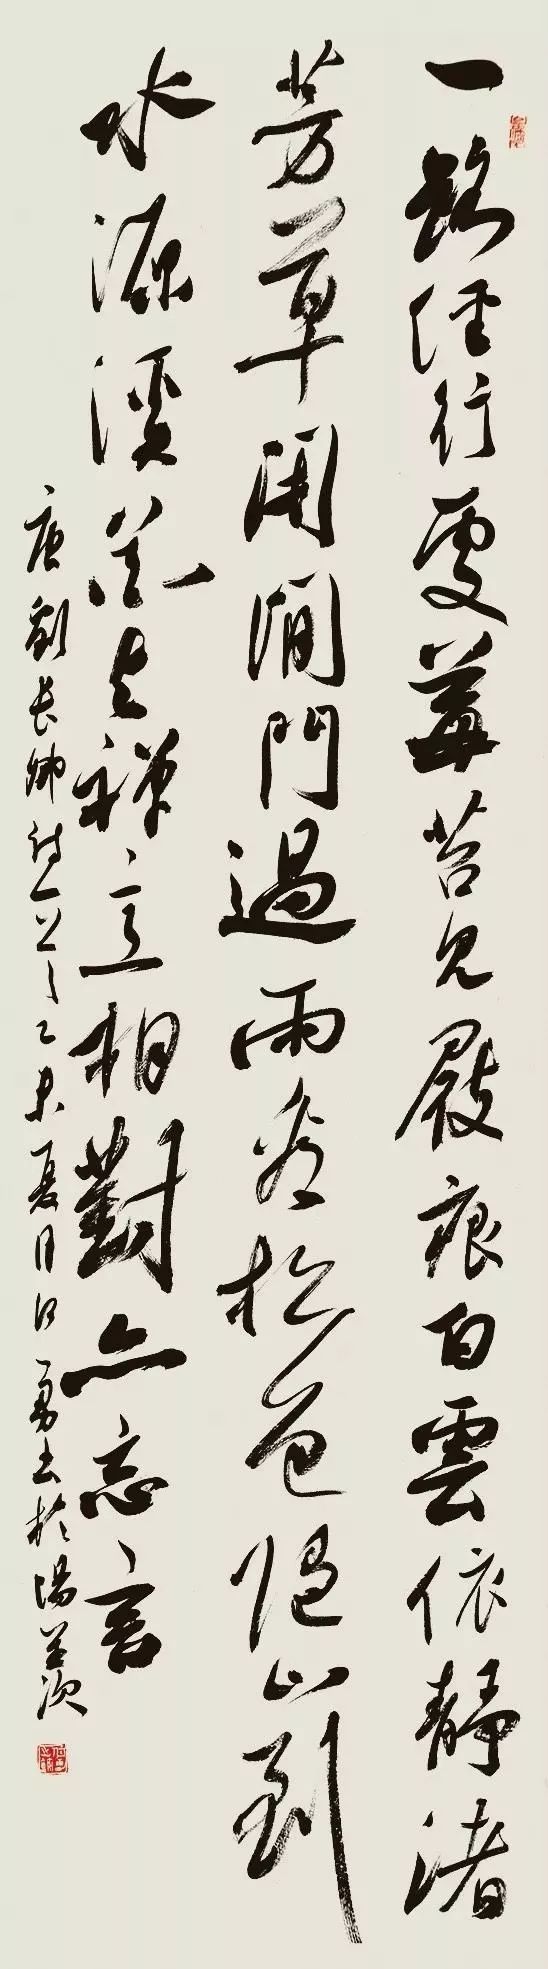 一路經行處莓苔見屐痕白雲依靜渚
芳草閉閒門過雨看松色隨山到
水源溪花与禪意相對亦忘言
唐劉長卿詩一首乙未夏月何勇書於陽羨